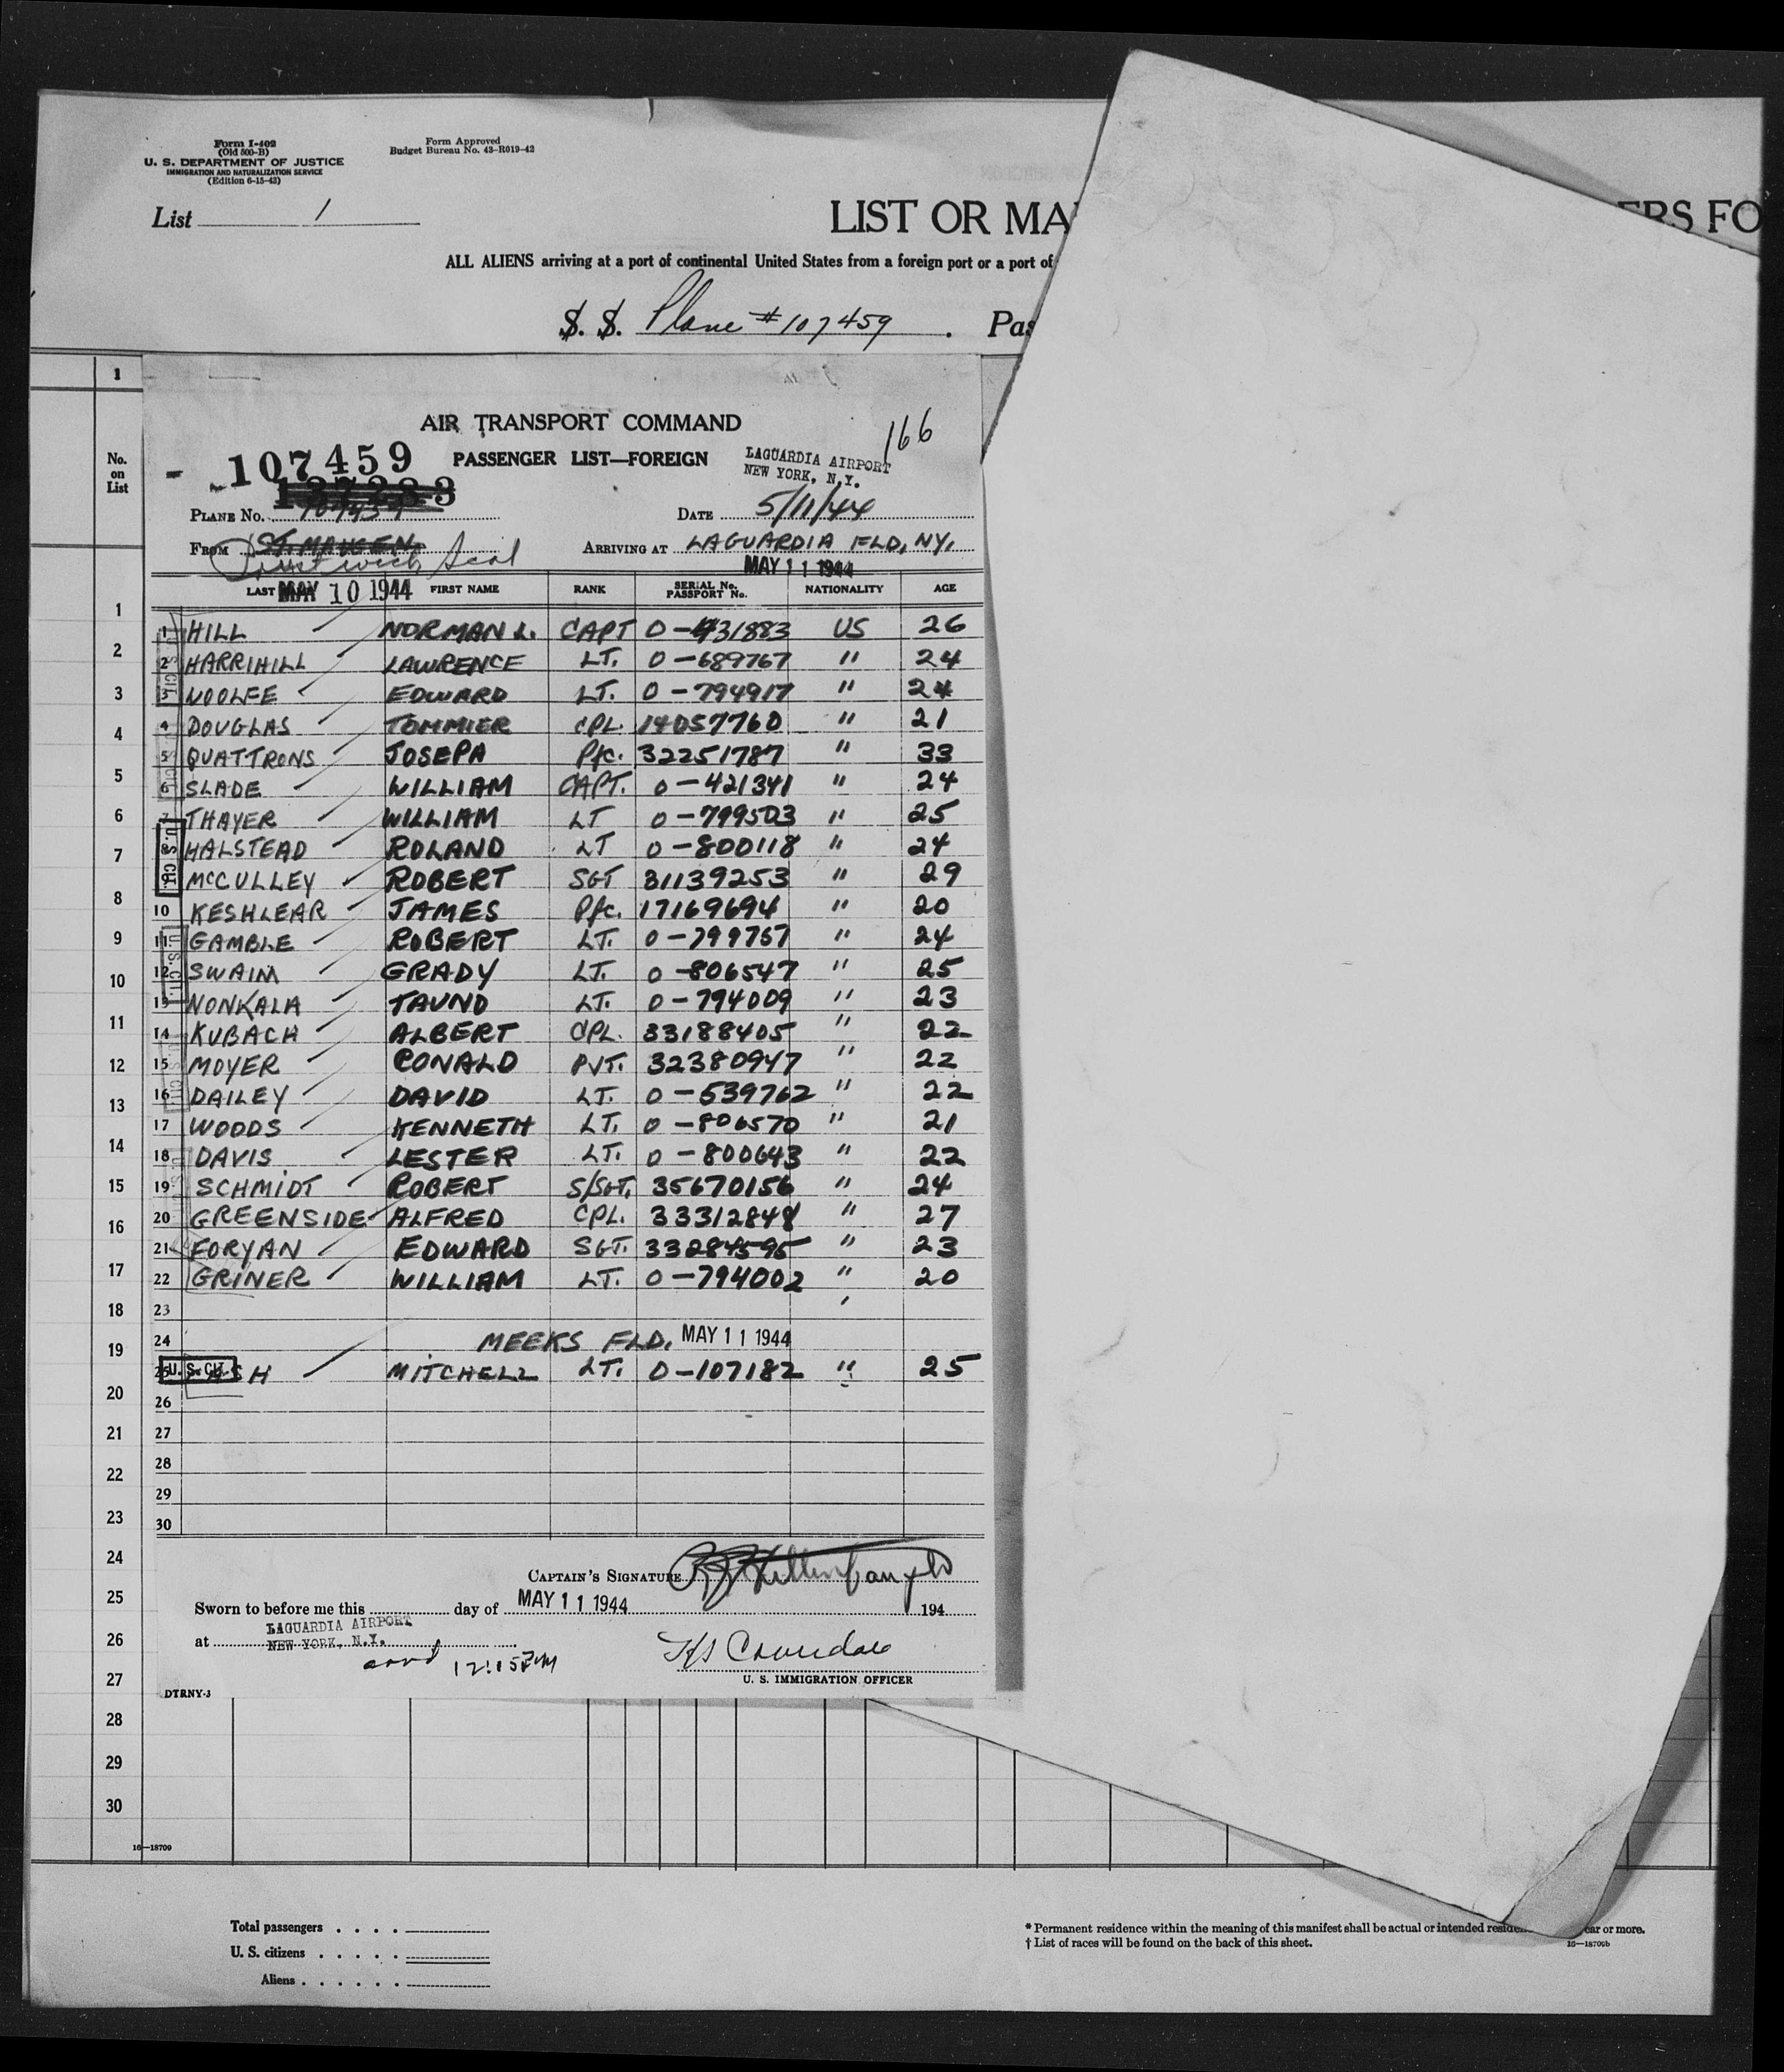 Form I-402
(Old 500-B)
U. S. DEPARTMENT OF JUSTICE
IMMIGRATION AND NATURALIZATION SERVICE
(Edition 6-15-43)
Form Approved
Budget Bureau No. 43-R019-42
List 1
LIST OR MA ERS FO
ALL ALIENS arriving at a port of continental United States from a foreign port or a port of
S. S. Plane # 107459 . Pas
1
No. on List
AIR TRANSPORT COMMAND
166
107459 PASSENGER LIST—FOREIGN LAGUARDIA AIRPORT
NEW YORK, N.Y.
137283
PLANE NO. 107459 DATE 5/11/44
FROM ST. MAWGEN ARRIVING AT LAGUARDIA FLD, NY.
Prestwick Scot MAY 11 1944
LAST MAY 10 1944 FIRST NAME RANK SERIAL No. PASSPORT No. NATIONALITY AGE
1 HILL NORMAN L. CAPT 0-431883 US 26
2 HARRIHILL LAWRENCE LT. 0-689767 " 24
3 WOOLFE EDWARD LT. 0-794917 " 24
4 DOUGLAS TOMMIER CPL. 14057760 " 21
5 QUATTRONS JOSEPH Pfc. 32251787 " 33
6 SLADE WILLIAM CAPT. 0-421341 " 24
7 THAYER WILLIAM LT 0-799503 " 25
8 HALSTEAD ROLAND LT 0-800118 " 24
9 McCULLEY ROBERT SGT 31139253 " 29
10 KESHLEAR JAMES Pfc. 17169694 " 20
11 GAMBLE ROBERT LT. 0-799757 " 24
12 SWAIM GRADY LT. 0-806547 " 25
13 NONKALA TAUNO LT. 0-794009 " 23
14 KUBACH ALBERT CPL. 33188405 " 22
15 MOYER CONALD PVT. 32380947 " 22
16 DAILEY DAVID LT. 0-539762 " 22
17 WOODS KENNETH LT. 0-806570 " 21
18 DAVIS LESTER LT. 0-800643 " 22
19 SCHMIDT ROBERT S/SGT. 35670156 " 24
20 GREENSIDE ALFRED CPL. 33312848 " 27
21 FORYAN EDWARD SGT. 33284595 " 23
22 GRINER WILLIAM LT. 0-794002 " 20
23
24 MEEKS FLD. MAY 11 1944
25 U. S. CIT. SH MITCHELL LT. 0-107182 " 25
26
27
28
29
30
CAPTAIN'S SIGNATURE
Sworn to before me this day of MAY 11 1944 194
at LAGUARDIA AIRPORT
NEW YORK, N.Y.
arrd 12:15 PM
U. S. IMMIGRATION OFFICER
DTRNY-3
1
2
3
4
5
6
7
8
9
10
11
12
13
14
15
16
17
18
19
20
21
22
23
24
25
26
27
28
29
30
16—18709
Total passengers . . . .
U. S. citizens . . . . .
Aliens . . . . . .
* Permanent residence within the meaning of this manifest shall be actual or intended ear or more.
† List of races will be found on the back of this sheet.
16—18709b